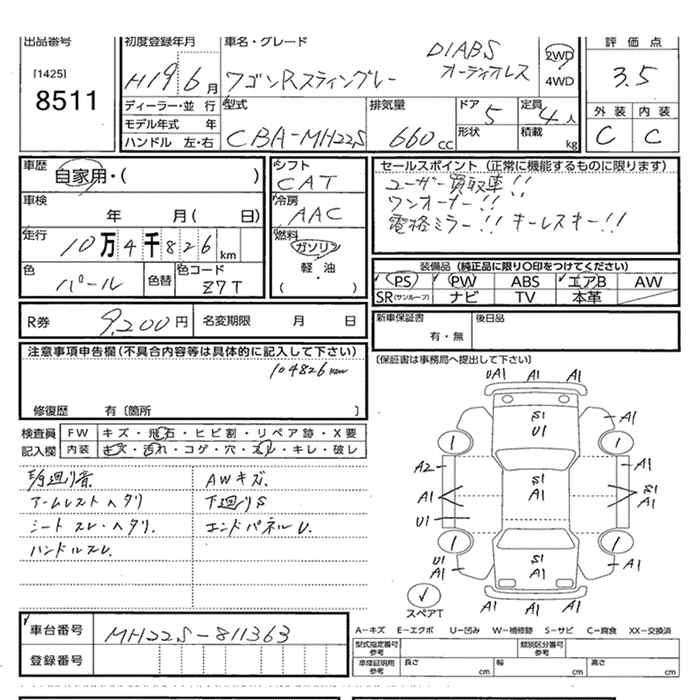 出品番号
[1425]
8511
初度登録年月
H19 6月
車名・グレード
DIABS
オーディオレス
ワゴンRスティングレー
2WD
4WD
評価点
3.5
外装 内装
C C
ディーラー・並行
モデル年式 年
ハンドル 左・右
型式
CBA-MH22S
排気量
660cc
ドア 5
形状
定員 4人
積載 kg
車歴
自家用・( )
車検
年 月( 日)
走行
10万4千826km
色
パール
色替
色コード
Z7T
シフト
CAT
冷房
AAC
燃料
ガソリン
軽・油
( )
セールスポイント(正常に機能するものに限ります)
ユーザー買取車!!
ワンオーナー!!
電格ミラー!! キーレスキー!!
装備品(純正品に限り〇印をつけてください)
PS PW ABS エアB AW
SR(サンルーフ) ナビ TV 本革
R券 9,200円 名変期限 月 日
新車保証書
有・無
後日品
(保証書は事務局へ提出して下さい)
注意事項申告欄(不具合内容等は具体的に記入して下さい)
104826km
修復歴 有〔箇所 〕
検査員
記入欄
FW キズ・飛石・ヒビ割・リペア跡・X要
内装 キズ・汚れ・コゲ・穴・スレ・キレ・破レ
アームレストヘタリ
シートスレ・ヘタリ.
ハンドルスレ.
AWキズ.
下廻りS
エンドパネルU.
UA1 A1 A1
S1
U1
A1
A2
A1
U1
S1
A1
S1
A1
A1
S1
A1
U1
A1
A1
A1 A1 A1
スペアT
車台番号 MH22S-811363
登録番号
A-キズ E-エクボ U-凹み W-補修跡 S-サビ C-腐食 XX-交換済
型式指定番号
参考
類別区分番号
参考
車庫証明用
参考
長さ cm
幅 cm
高さ cm